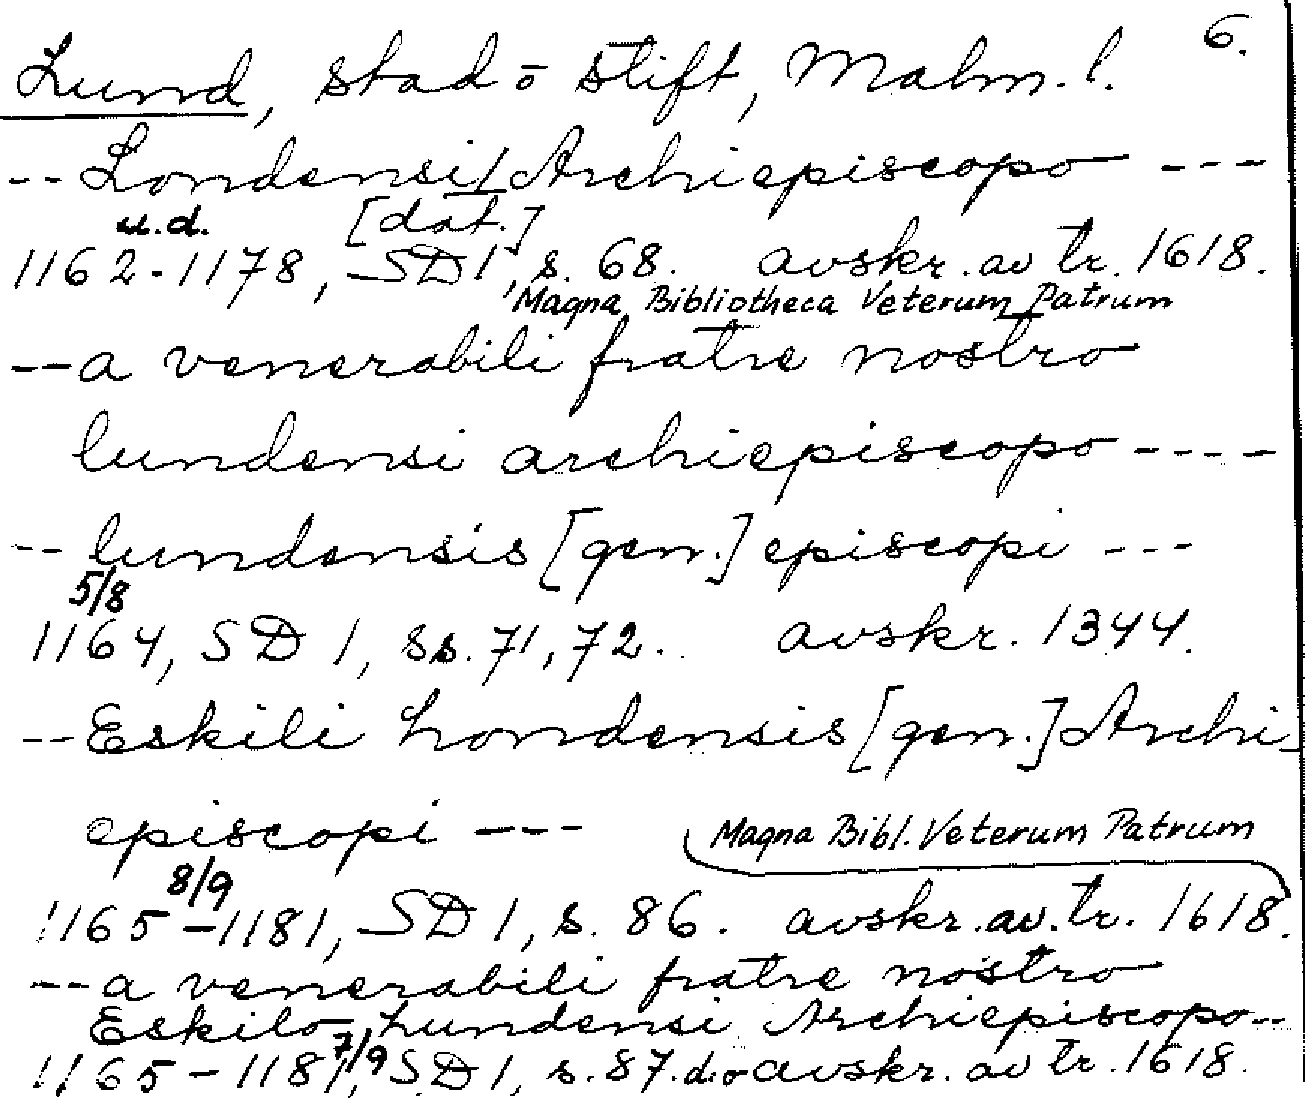 6.
Lund, stad o stift, Malm. l.
-- Londensi Archiepiscopo ---
u.d. [dat.]
1162-1178, SD 1, s. 68. avskr. av tr. 1618.
Magna Bibliotheca Veterum Patrum
-- a venerabili fratre nostro
lundensi archiepiscopo ----
-- lundensis [gen.] episcopi ---
5/8
1164, SD 1, ss. 71, 72. avskr. 1344.
-- Eskili Londensis [gen.] Archi-
episcopi ---
Magna Bibl. Veterum Patrum
8/9
1165-1181, SD 1, s. 86. avskr. av. tr. 1618.
-- a venerabili fratre nostro
Eskilo Lundensi Archiepiscopo --
7/9
1165-1181, SD 1, s. 87. d:o avskr. av tr. 1618.